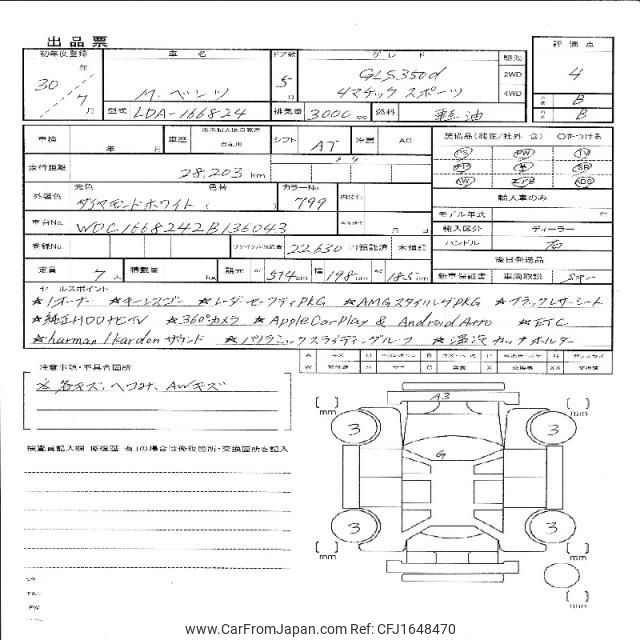 出品票
初年度登録 車名 ドア数 グレード 駆動 評価点
30年 7月 M.ベンツ 5D GLS350d 4マチック スポーツ 2WD 4WD 4
型式 LDA-166824 排気量 3000cc 燃料 軽油 B B
車検 年 月 車歴 自家用 シフト AT 冷房 AC 装備品(純正/社外 含) Oをつける
PS PW TV
走行距離 28,203 km SR
AW エアB
外装色 元色 ダイヤモンドホワイト 色替 ( ) カラーNo 799 輸入車のみ
モデル年式
車台No. WDC1668242B136043 輸入区分 ディーラー
登録No. リサイクル預託金 22,630 円預託済 未預託 ハンドル 右
後日発送品
定員 7人 積載量 kg 諸元 574cm 幅 198cm 185cm 新車保証書 車両取説
セールスポイント
★1オーナー ★キーレスゴー ★レーダーセーフティPKG ★AMGスタイリングPKG ★ブラックレザーシート
★純正HDDナビTV ★360°カメラ ★AppleCarPlay & AndroidAuto ★ETC
★harman/kardonサウンド ★パノラミックスライディングルーフ ★温冷カップホルダー
注意事項・不具合箇所
各キズ、ヘコミ、AWキズ
検査員記入欄 修復歴 有)の場合は修復箇所・交換箇所を記入
A3
G
3 3
3 3
mm mm
mm mm
www.CarFromJapan.com Ref: CFJ1648470